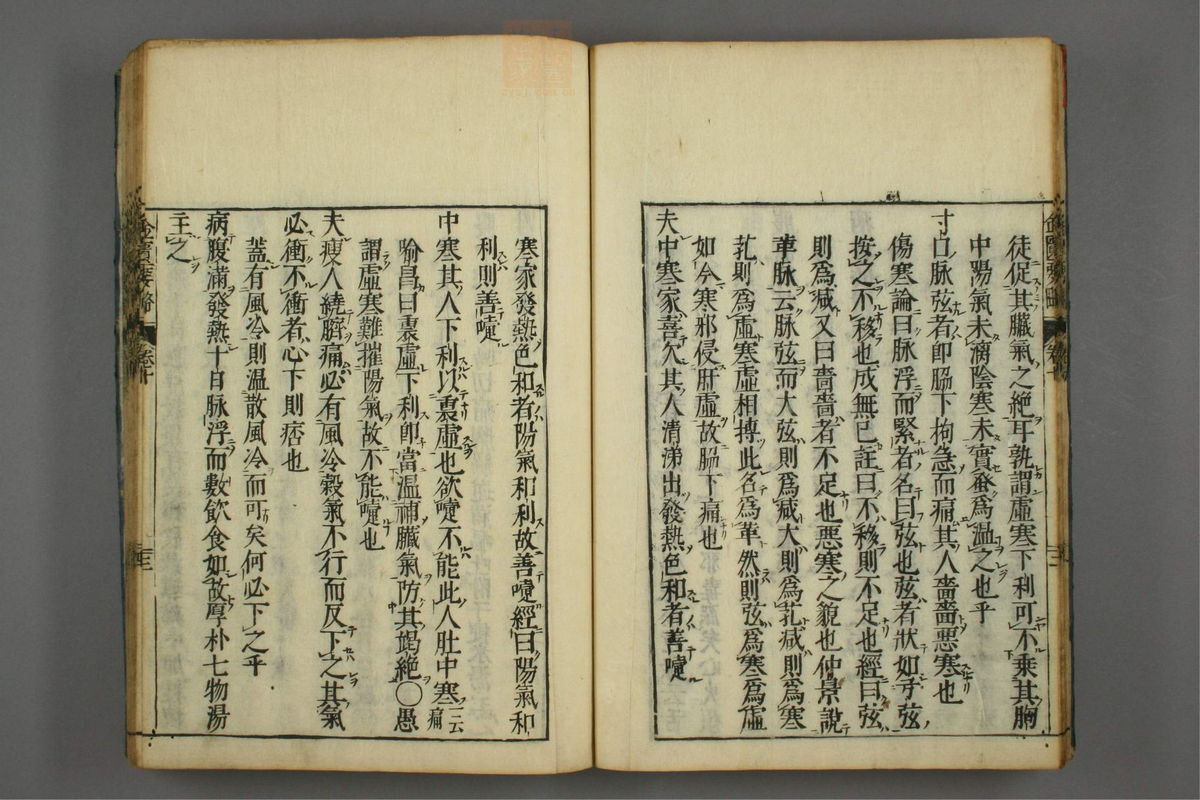 徒促其臟氣之絶耳孰謂虛寒下利可不乗其胸
中陽氣未漓陰寒未實蚤爲溫之也乎
寸口脉弦者卽脇下拘急而痛其人嗇嗇惡寒也
傷寒論曰脉浮而緊者名曰弦也弦者狀如弓弦
按之不移也成無已註曰不移則不足也經曰弦
則爲减又曰嗇嗇者不足也惡寒之貌也仲景說
革脉云脉弦而大弦則爲减大則爲芤减則爲寒
芤則爲虛寒虛相搏此名爲革然則弦爲寒爲虛
如今寒邪侵肝虛故脇下痛也
夫中寒家喜欠其人清涕出發熱色和者善嚔
寒家發熱色和者陽氣和利故善嚔經曰陽氣和
利則善嚔
中寒其人下利以裏虛也欲嚔不能此人肚中寒一云痛
喻昌曰裏虛下利卽當溫補臟氣防其竭絶〇愚
謂虛寒難摧陽氣故不能嚔也
夫瘦人繞臍痛必有風冷穀氣不行而反下之其氣
必衝不衝者心下則痞也
蓋有風冷則溫散風冷而可矣何必下之乎
病腹滿發熱十日脉浮而數飲食如故厚朴七物湯
主之
金匱要略
卷十
金匱要略
卷十